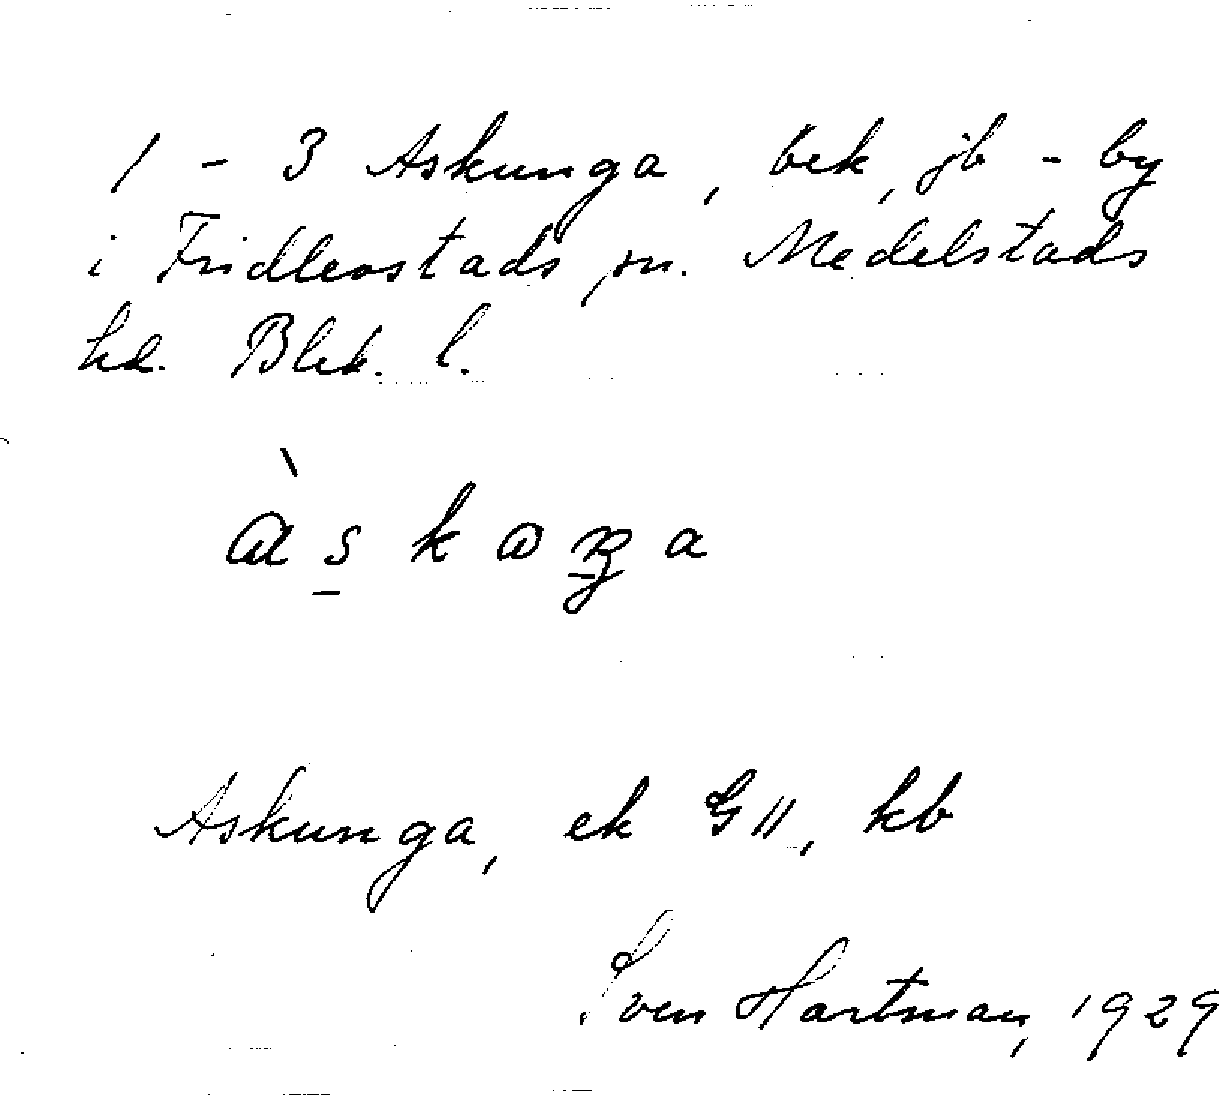 1 - 3 Askunga, bek, jb - by
i Fridlevstads sn. Medelstads
hd. Blek. l.
Askunga, ek G II, kb
Sven Hartman, 1929